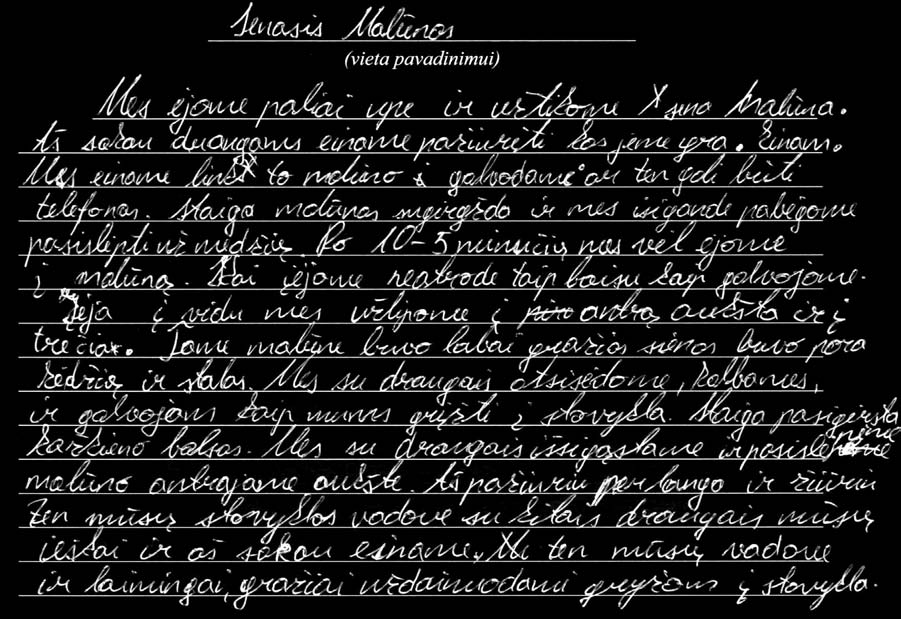 Senasis Malūnas
(vieta pavadinimui)
Mes ejome paliai upe ir užtikome sena malūna.
Aš sakau draugams einame pažiurėti kas jeme yra. Einam.
Mes einame link to malūno ir galvodami ar ten gali būti
telefonas. Staiga malūnas sugirgždo ir mes isigandę pabėgome
pasislepti už medžių. Po 10-5 minučių mes vėl ejome
į malūną. Kai įėjome neatrode taip baisu kaip galvojome.
Įėja į vidu mes užlipome į antrą aukšta ir į
trečia. Jame malūne buvo labai gražios sienos buvo pora
kėdžių ir stalas. Mes su draugais atsisėdome, kalbamės,
ir galvojam kaip mums grįžti į stovykla. Staiga pasigirsta
kažkieno balsas. Mes su draugais išsigąstame ir pasislepiame
malūno antrajame aukšte. Aš pažiuriu per langa ir žiūriu
ten mūsų stovyklos vadovė su kitais draugais mūsų
ieškai ir aš sakau einame, ten mūsų vadovė
ir laimingai, gražiai uždainuodami gryžom į stovykla.